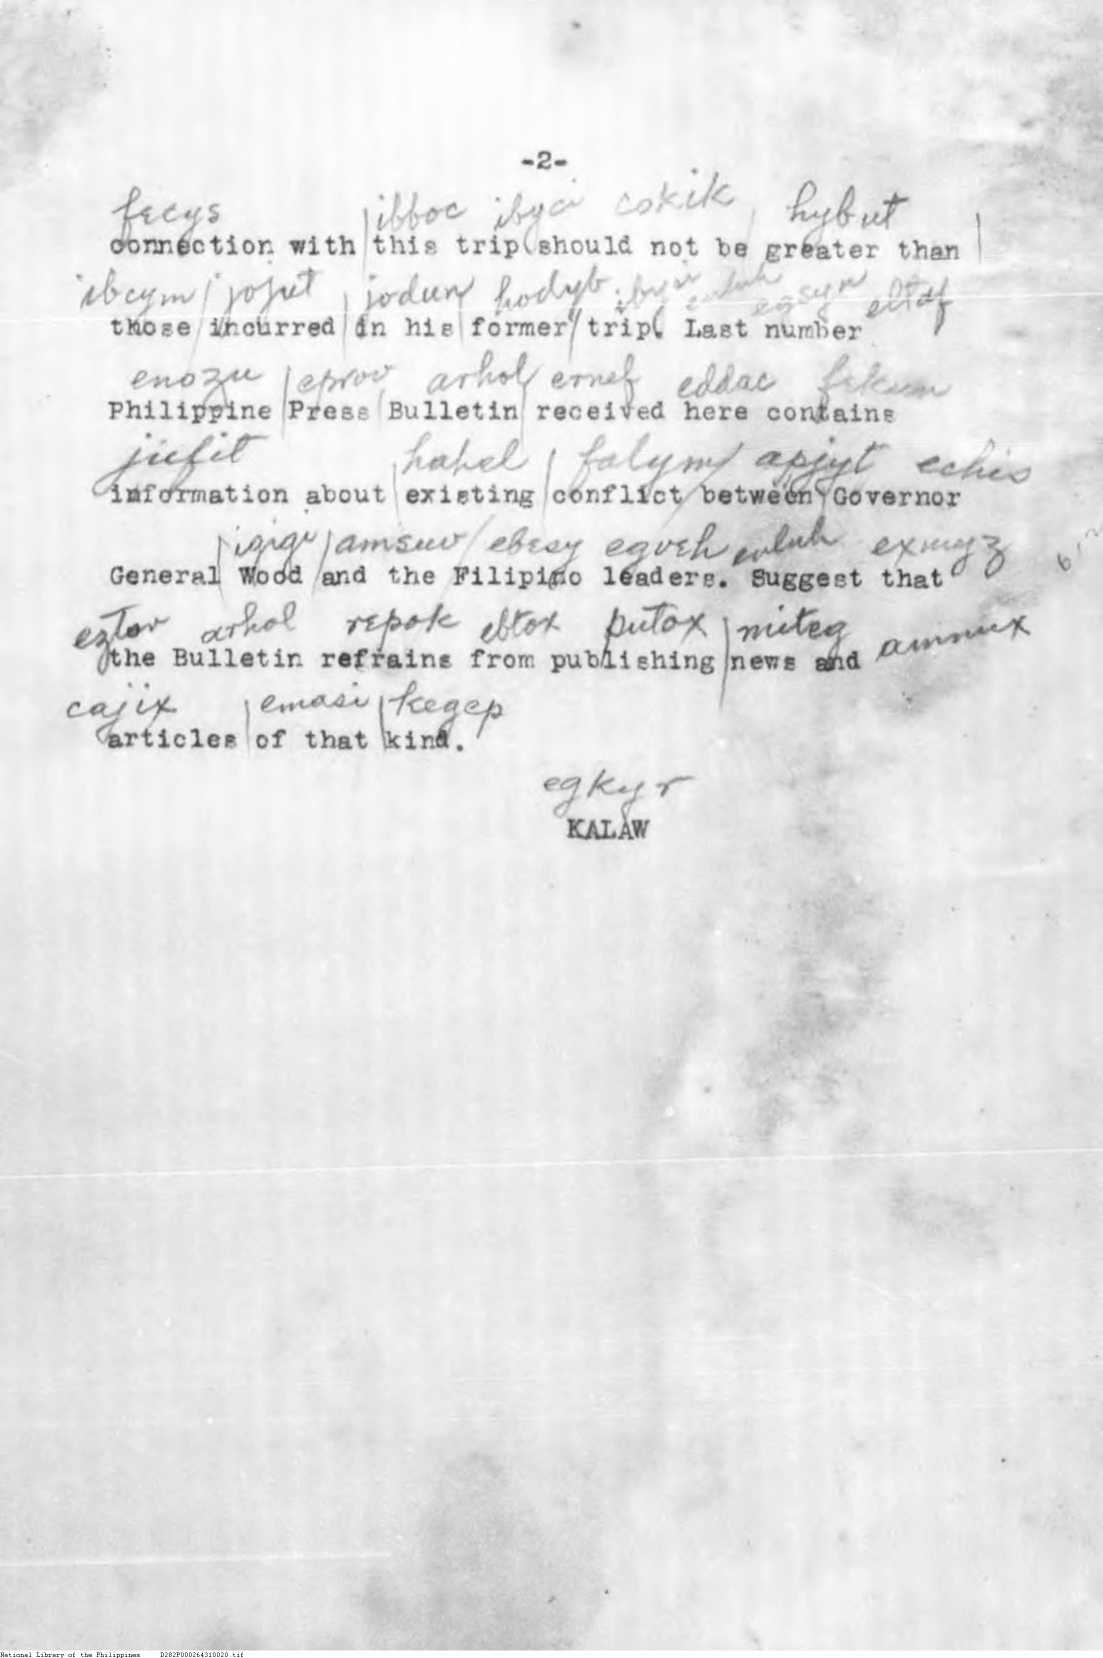 -2-
fecys ibboc ibyci cokik hybut
connection with this trip should not be greater than
ibcym jojut jodun hodyb
those incurred in his former trip. Last number
enozu eprov arhol ernef eddac fekum
Philippine Press Bulletin received here contains
jufit hahel falym apjyt echis
information about existing conflict between Governor
igigi amsuv ebesy egveh exmyz
General Wood and the Filipino leaders. Suggest that
eztov arhol repok ebtox putox miteg
the Bulletin refrains from publishing news and
cajix emasi kegep
articles of that kind.
egkyr
KALAW
National Library of the Philippines D282P000264310020.tif